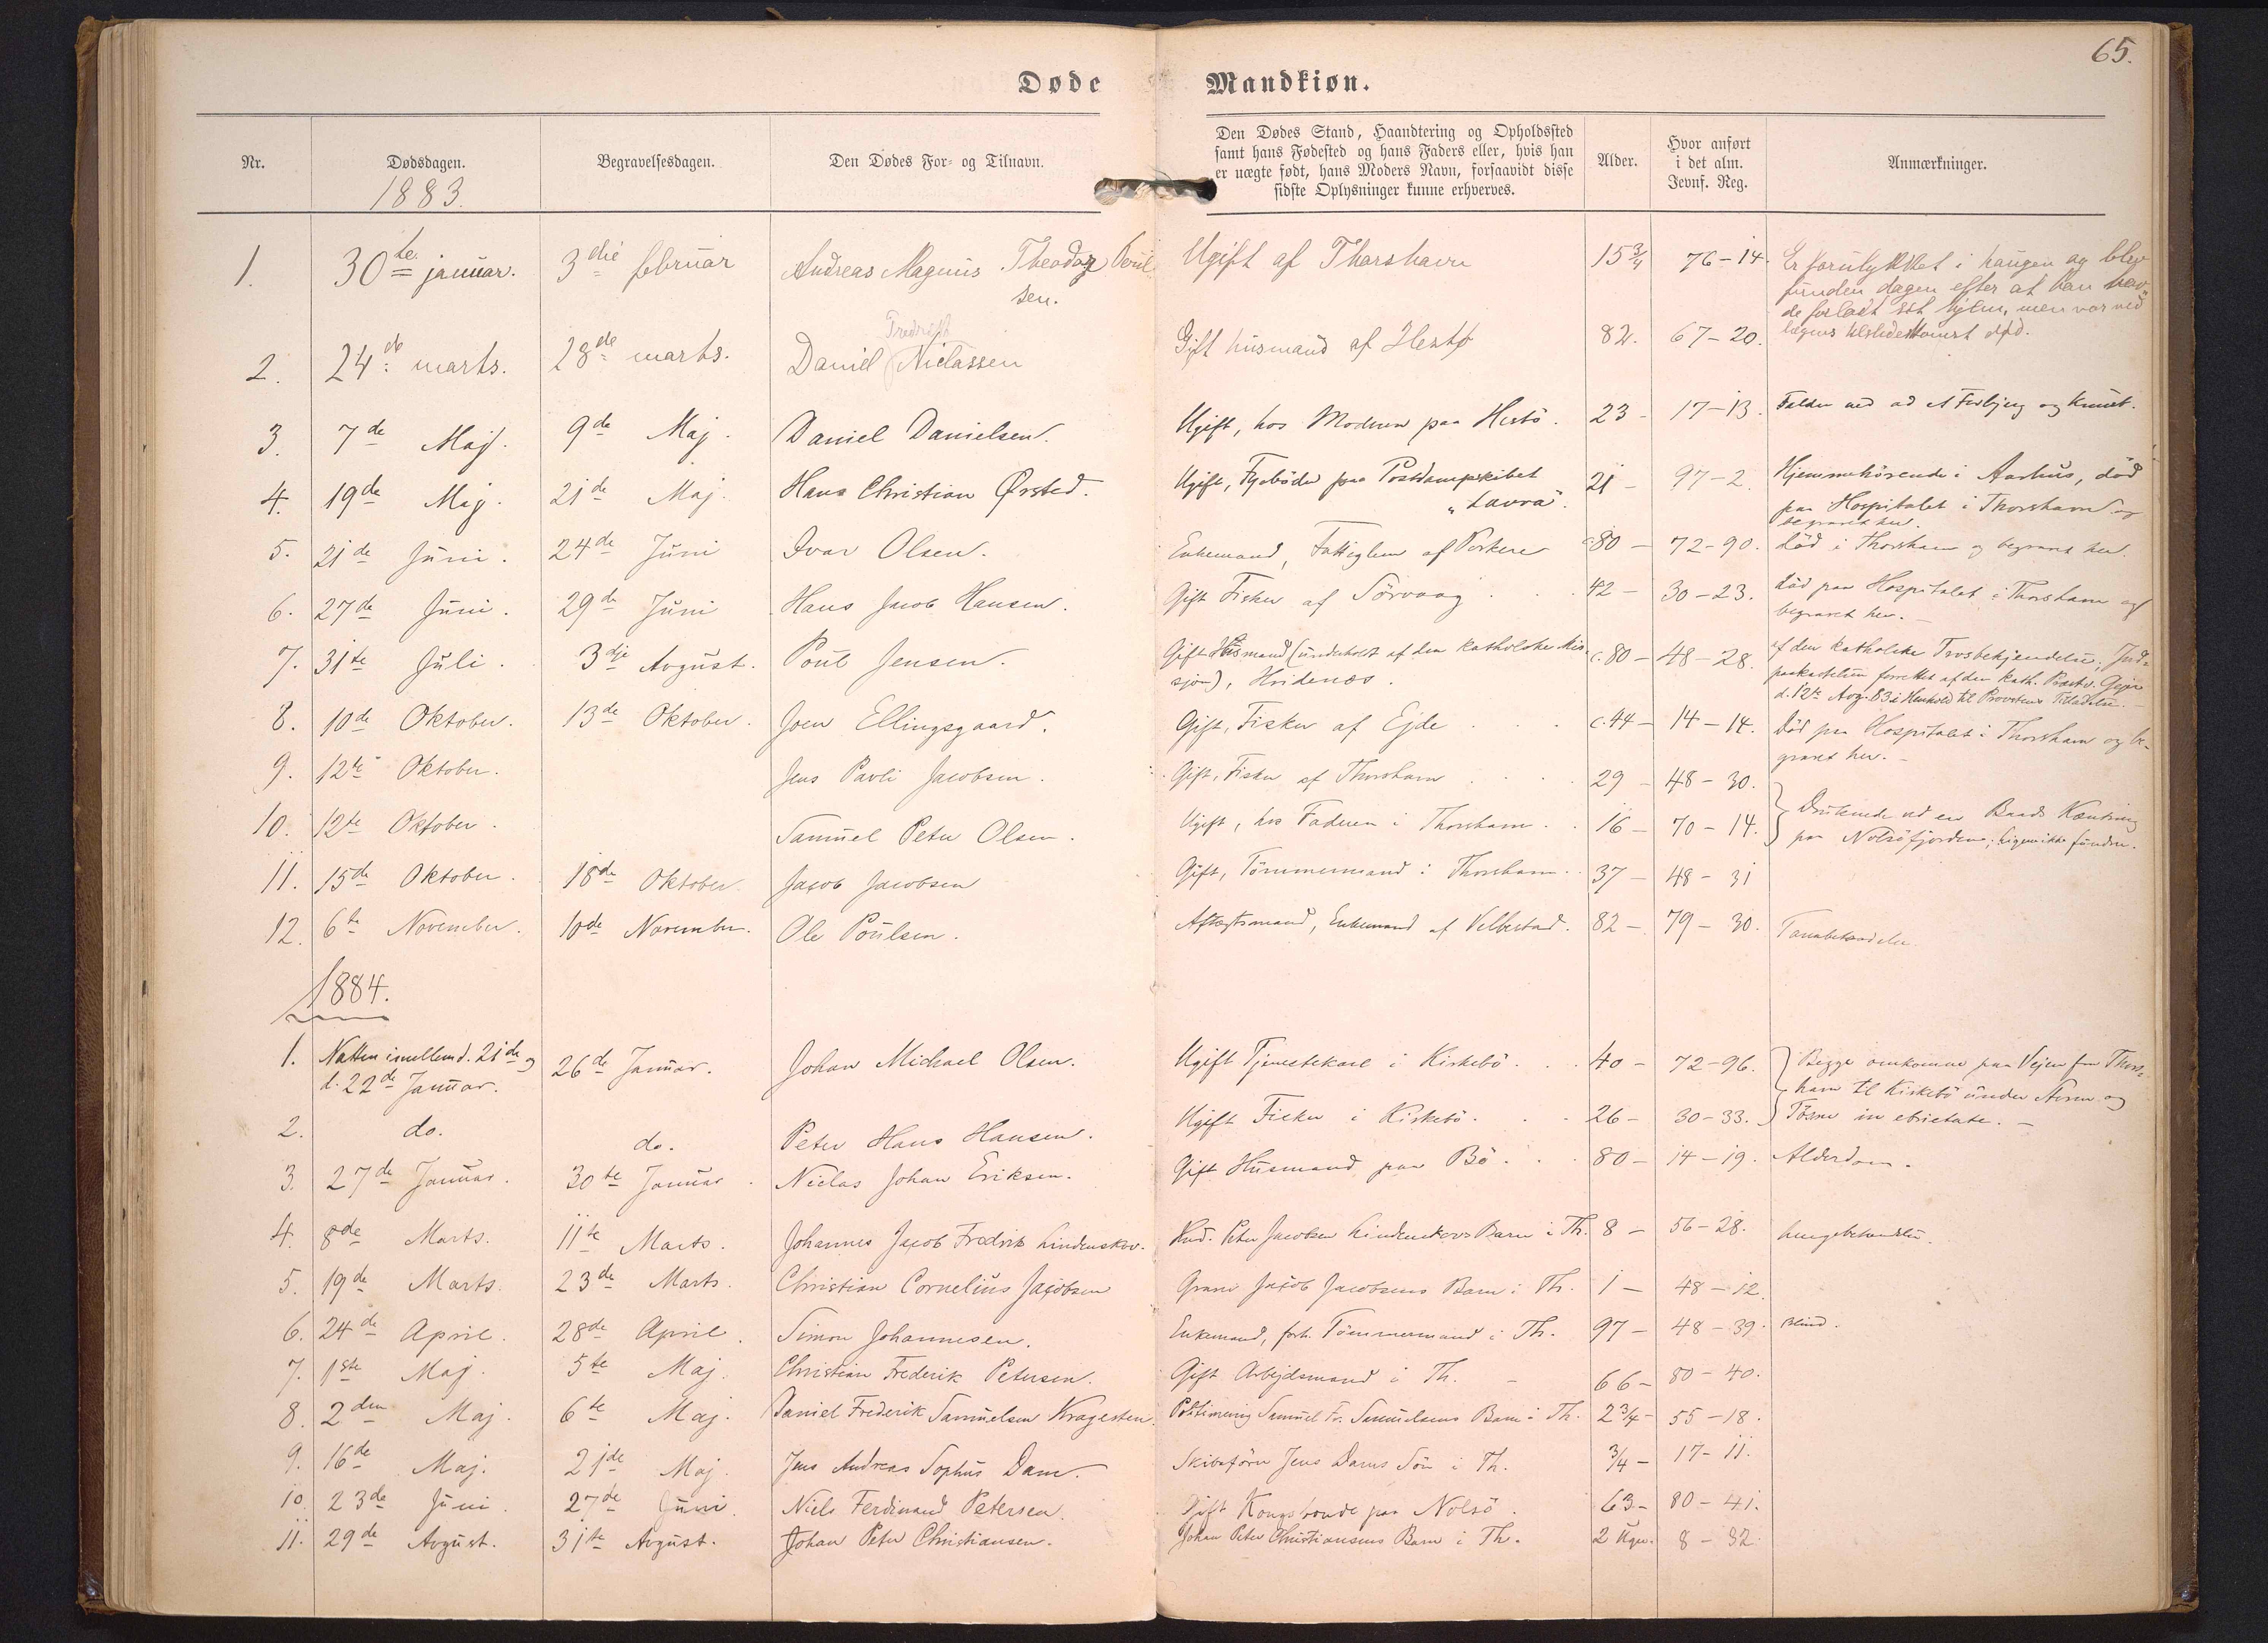 65.
Døde Mandkiøn.
Nr. Dødsdagen. Begravelsesdagen. Den Dødes For- og Tilnavn. Den Dødes Stand, Haandtering og Opholdsted samt hans Fødested og hans Faders eller, hvis han er uægte født, hans Moders Navn, forsaavidt disse sidste Oplysninger kunne erhverves. Alder. Hvor anført i det alm. Jevnf. Reg. Anmærkninger.
1883.
1. 30te januar. 3die februar Andreas Magnus Theodor Poulsen. Ugift af Thorshavn 15 3/4 76-14. Er forulykket i haugen og blev
funden dagen efter at han hav-
de forladt sit hjem, men var ved
lægens tilstedekomst død.
2. 24de marts. 28de marts. Daniel Fredrik Niclassen Gift husmand af Hestø 82. 67-20.
3. 7de Maj. 9de Maj. Daniel Danielsen. Ugift, hos Moderen paa Hestö. 23 - 17-13. Falden ned ad et Fuglbjerg og knust.
4. 19de Maj. 21de Maj. Hans Christian Ørsted. Ugift, Fyrbøder paa Postdampskibet "Laura". 21 - 97-2. Hjemmehörende i Aarhus, död
paa Hospitalet i Thorshavn og
begravet her.
5. 21de Juni. 24de Juni Ivar Olsen. Enkemand, Fattiglem af Porkere c.80 - 72-90. Död i Thorshavn og begravet her.
6. 27de Juni. 29de Juni Hans Jacob Hansen. Gift Fisker af Sörvaag . . . 42 - 30-23. Död paa Hospitalet i Thorshavn og
begravet her. -
7. 31te Juli. 3dje Avgust. Poul Jensen. Gift Husmand (underholdt af den katholske Mis-
sjon), Hvidenæs. c.80 - 48-28. af den katholske Trosbekjendelse; Jord-
paakastelsen forrettet af den kath. Præst
d. 12te Avg. 83 i Henhold til Provstens Tilladelse. -
8. 10de Oktober. 13de Oktober. Joen Ellingsgaard. Gift, Fisker af Ejde . . . c.44 - 14-14. Död paa Hospitalet i Thorshavn og be-
gravet her. -
9. 12te Oktober. Jens Pavli Jacobsen. Gift, Fisker af Thorshavn . . . 29 - 48-30.
10. 12te Oktober. Samuel Peter Olsen. Ugift, hos Faderen i Thorshavn. . 16 - 70-14. Druknede ved en Baads Kæntring
paa Nolsöfjorden; Ligene ikke funden.
11. 15de Oktober. 18de Oktober. Jacob Jacobsen Gift, Tömmermand i Thorshavn. . 37 - 48-31
12. 6te November. 10de November. Ole Poulsen. Aftægtsmand, Enkemand af Velbestad. 82 - 79-30.
1884.
1. Natten imellem d. 21de og
d. 22de Januar. 26de Januar. Johan Michael Olsen. Ugift Tjenestekarl i Kirkebö. . . 40 - 72-96. Begge omkomne paa Vejen fra Thors-
havn til Kirkebö under Storm og
2. do. do. Peter Hans Hansen. Ugift Fisker i Kirkebö. . . 26 - 30-33. in ebrietate. -
3. 27de Januar. 30te Januar. Niclas Johan Eriksen. Gift Husmand paa Bö. . . 80 - 14-19. Alderdom.
4. 8de Marts. 11te Marts. Johannes Jacob Fredrik Lindenskov. Peter Jacobsen Lindenskovs Barn i Th. 8 - 56-28. Lungebetændelse.
5. 19de Marts. 23de Marts. Christian Cornelius Jacobsen Jacob Jacobsens Barn i Th. 1 - 48-12.
6. 24de April. 28de April. Simon Johannesen. Enkemand, forh. Tömmermand i Th. 97 - 48-39. Blind.
7. 1ste Maj. 5te Maj. Christian Frederik Petersen. Gift Arbejdsmand i Th. - 66 - 80-40.
8. 2den Maj. 6te Maj. Daniel Frederik Samuelsen Kragesteen. Samuel Fr. Samuelsens Barn i Th. 2 3/4 - 55-18.
9. 16de Maj. 21de Maj. Jens Andreas Sophus Dam. Skibsförer Jens Dams Sön i Th. 3/4 - 17-11.
10. 23de Juni. 27de Juni. Niels Ferdinand Petersen. Gift Kongsbonde paa Nolsö. 63 - 80-41.
11. 29de Avgust. 31te Avgust. Johan Peter Christiansen. Johan Peter Christiansens Barn i Th. 2 Uger. 8-32.